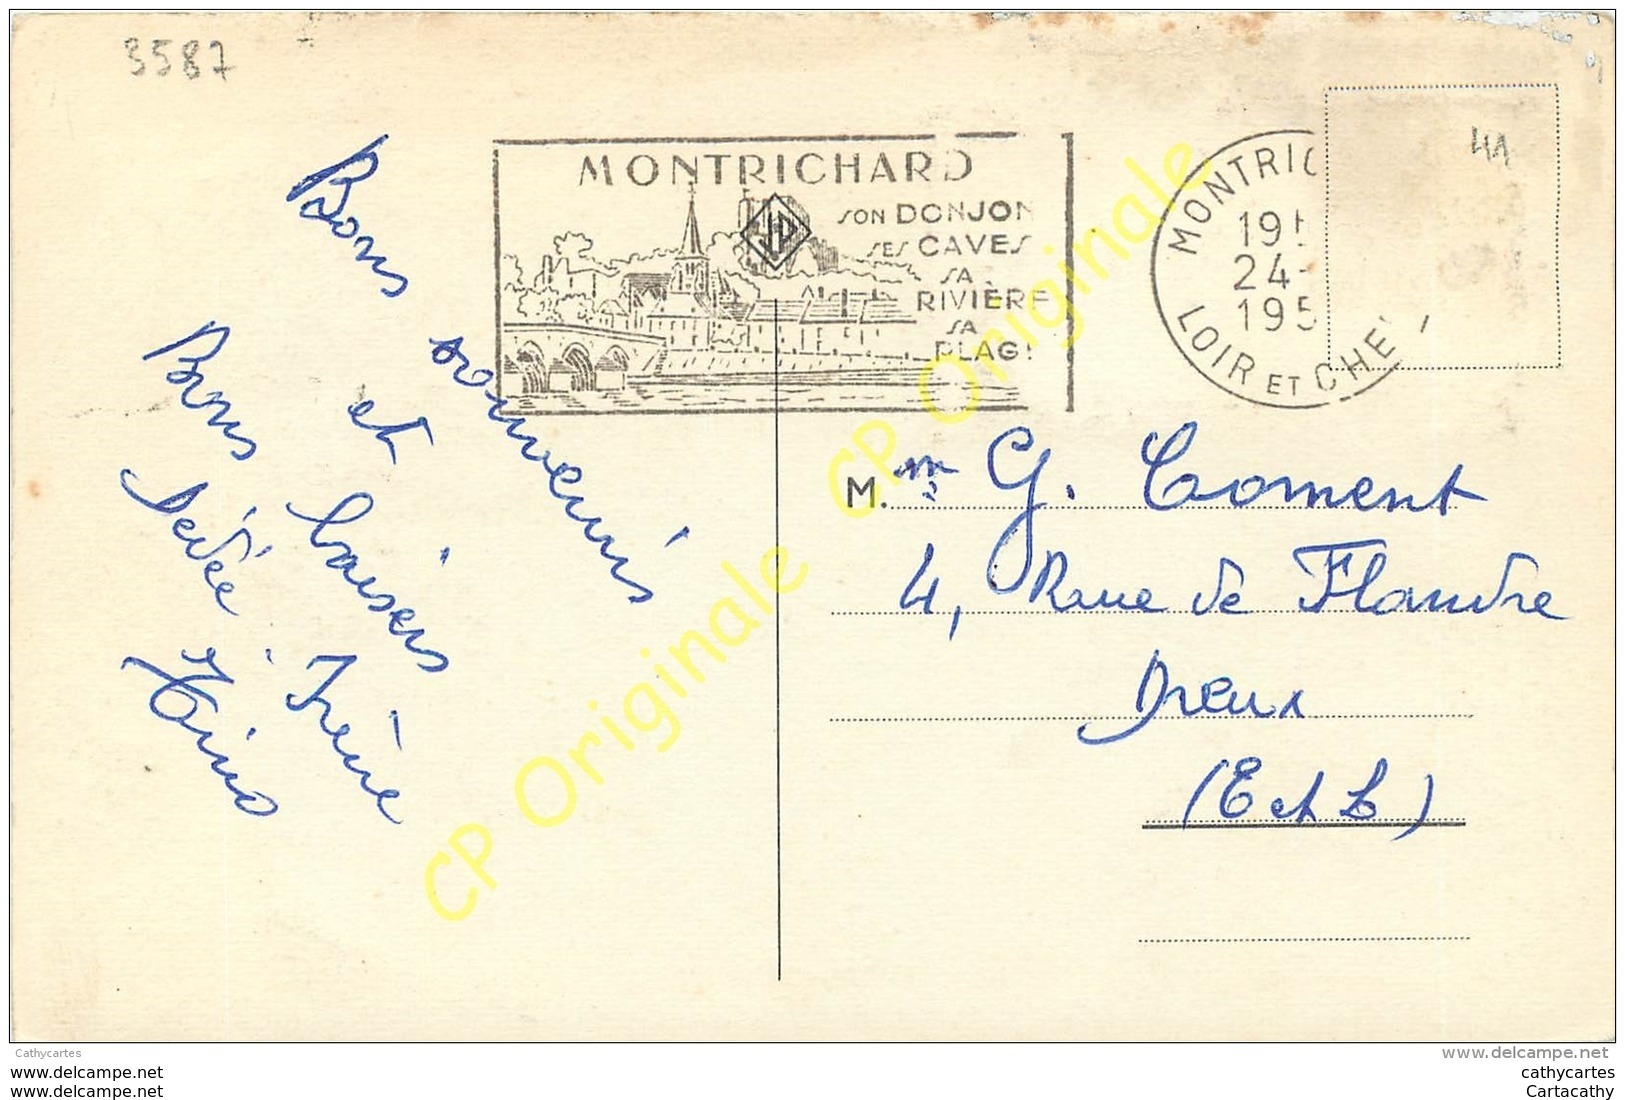 3587
41
MONTRICHARD
SON DONJON
SES CAVES
SA
RIVIÈRE
SA
PLAG
JP
MONTRIC
19
24-
195
LOIR ET CHE
Bons souvenirs
et baisers
Bons
Dédée. Irène
M.me G. Coment
4, Rue de Flandre
Dreux
(E et L)
CP Originale
CP Originale
CP Originale
Cathycartes
www.delcampe.net
www.delcampe.net
www.delcampe.net
cathycartes
Cartacathy